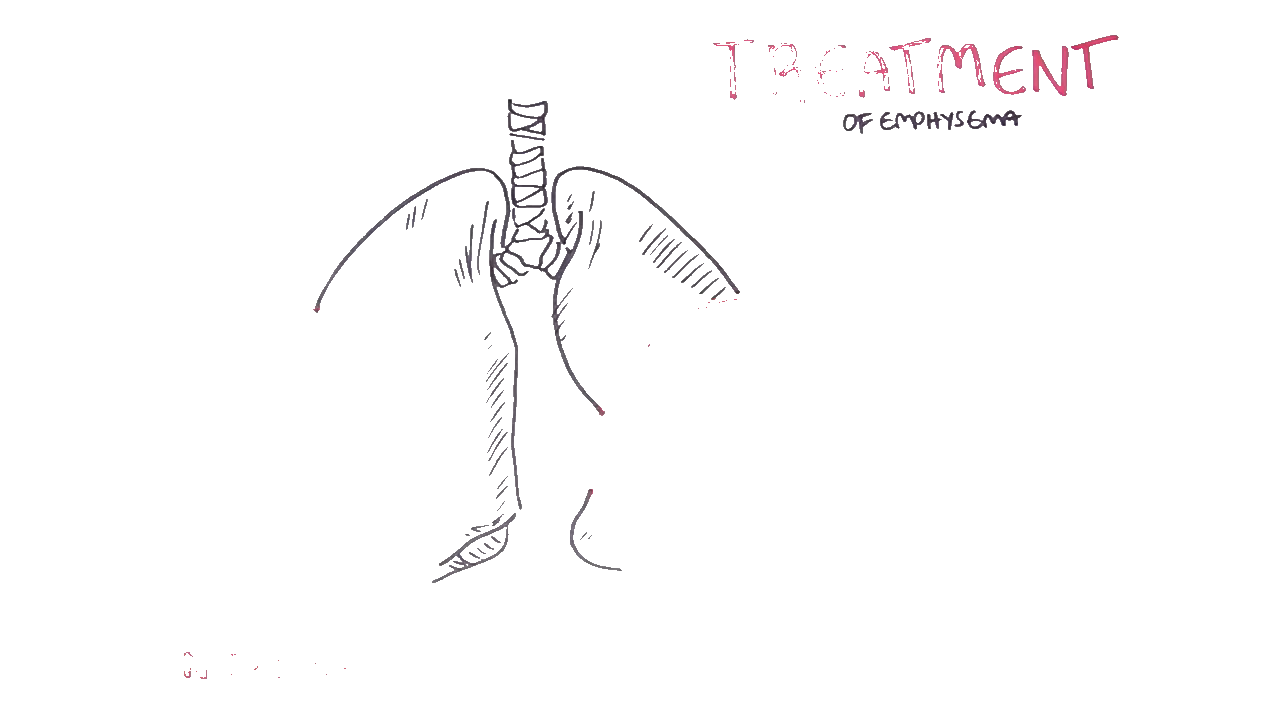 TREATMENT
OF EMPHYSEMA